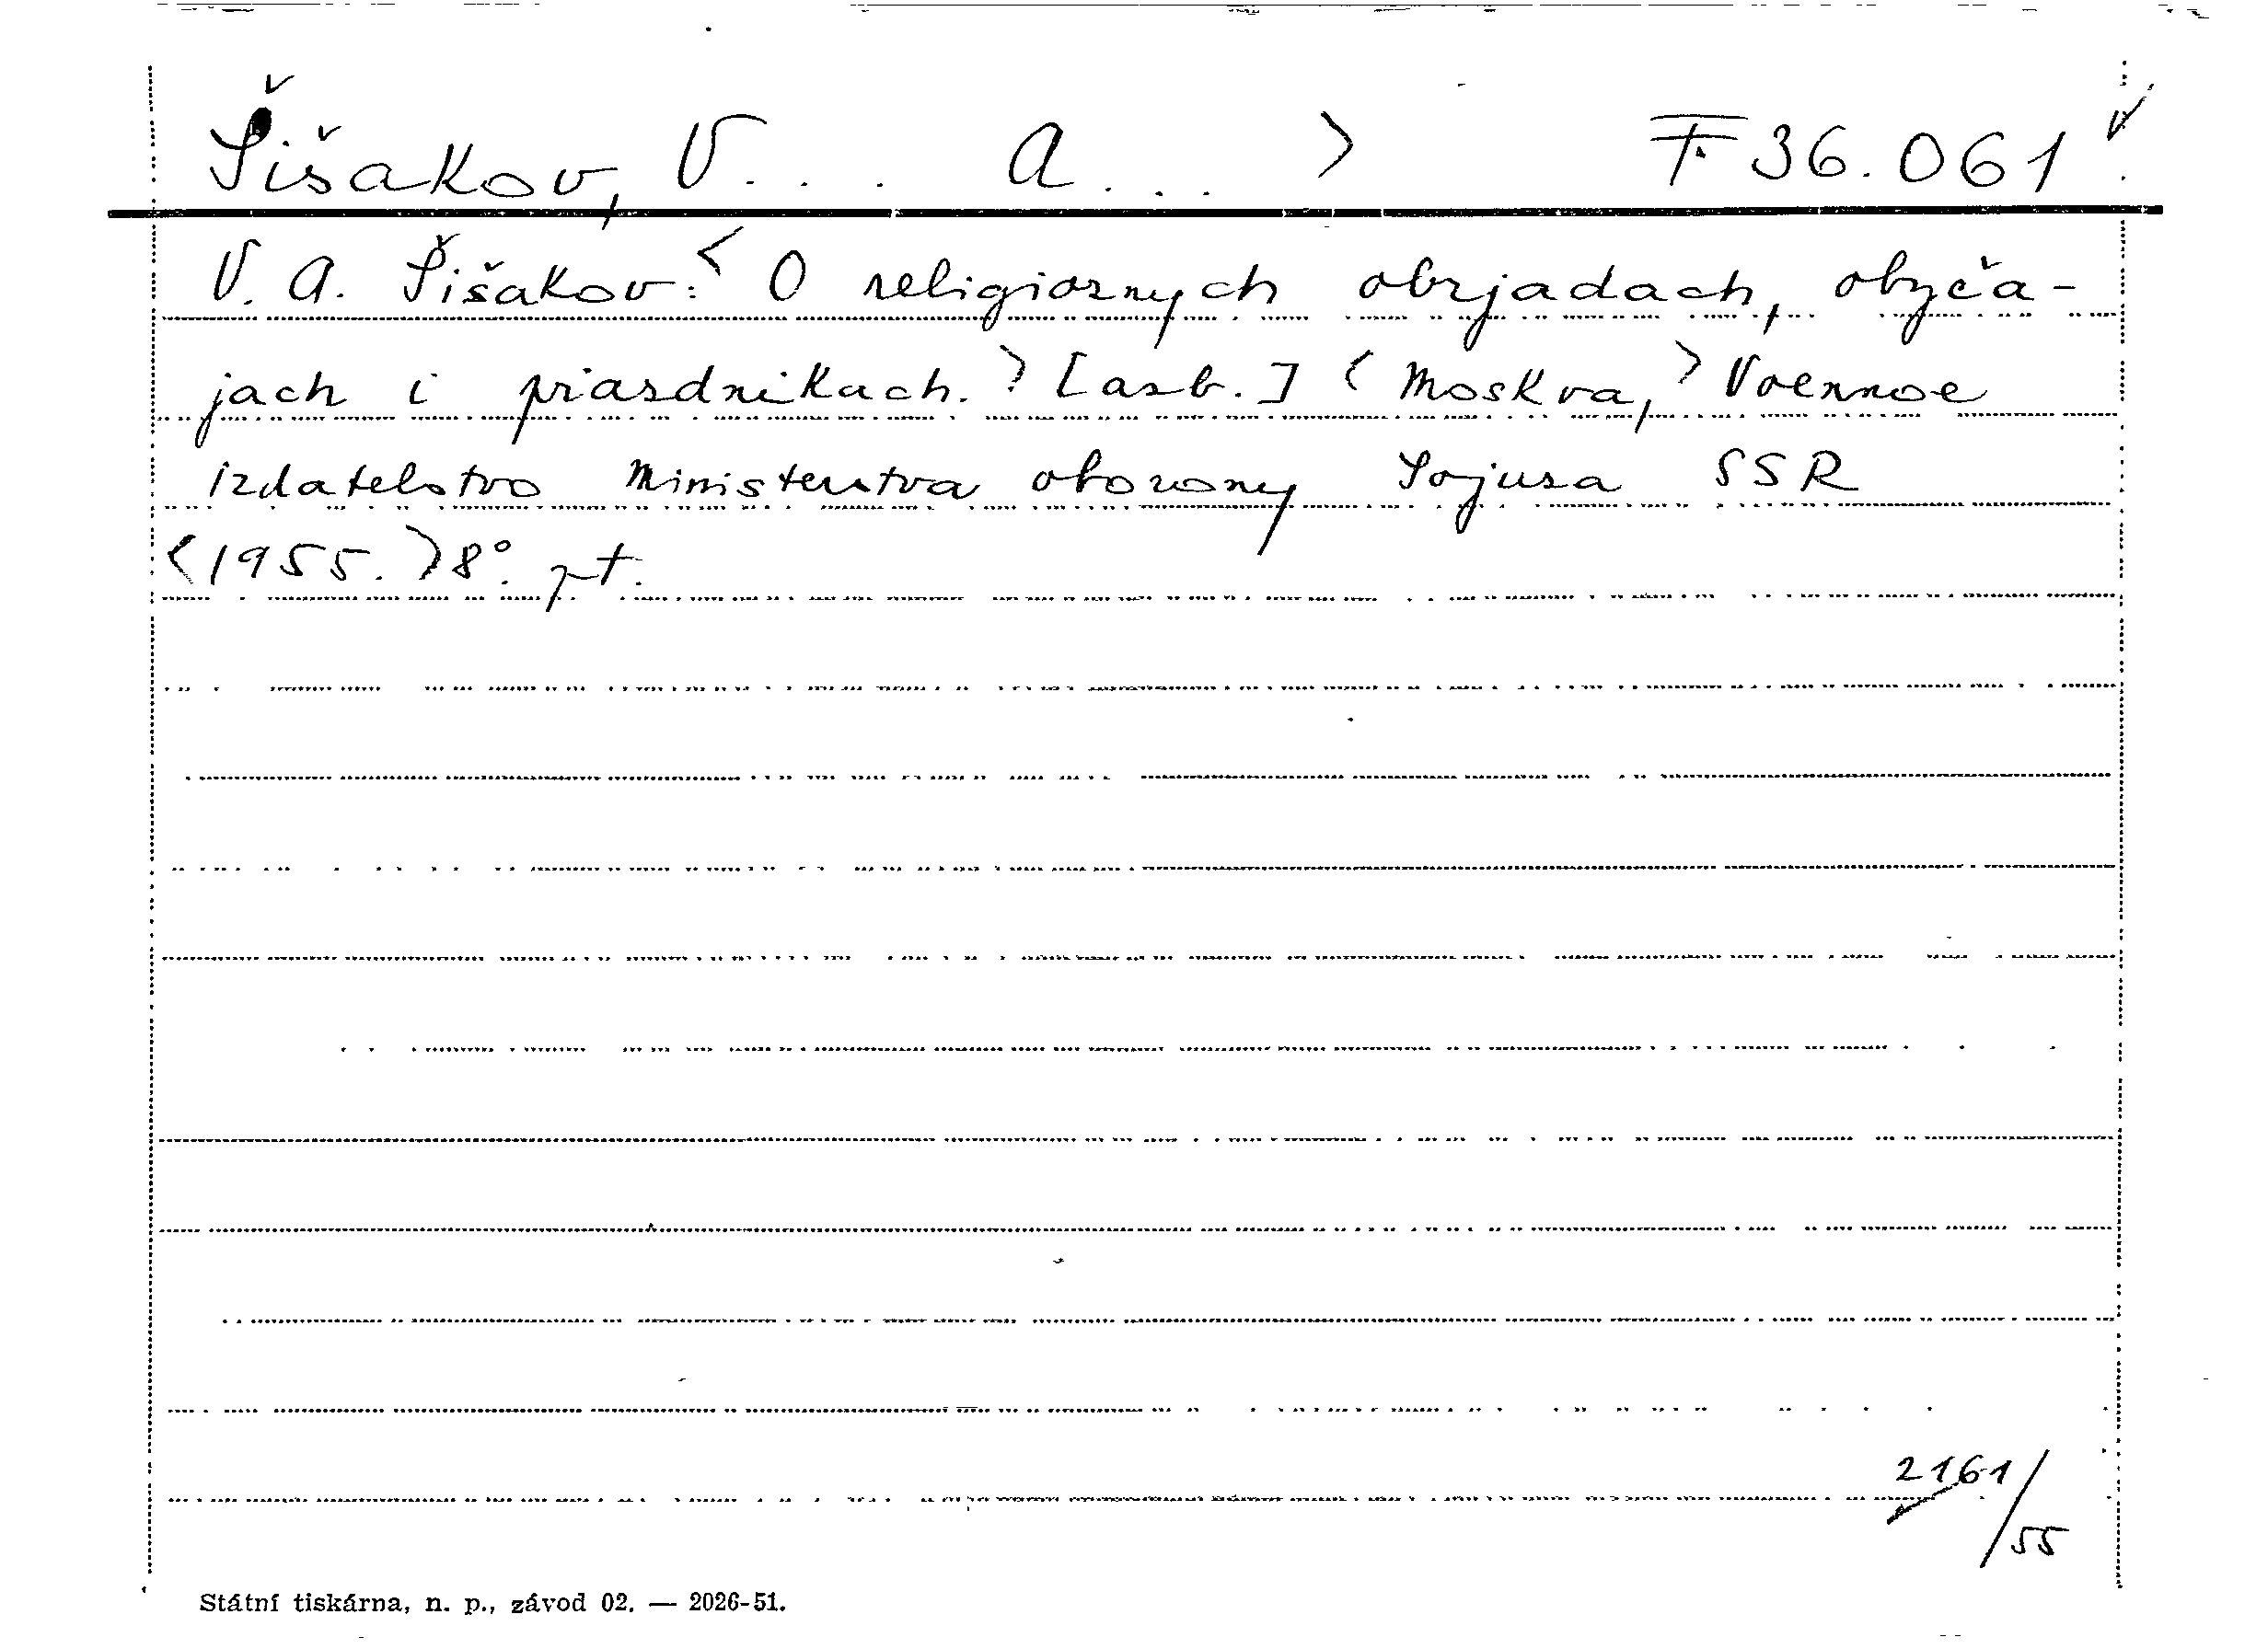 Šišakov, V... A... > F 36.061
V. A. Šišakov: < O religioznych obrjadach, obyča-
jach i prazdnikach. > [azb.] < Moskva, > Voennoe
izdatelstvo Ministerstva oborony Sojuza SSR
<1955.> 8°. pt.
2161/
55
Státní tiskárna, n. p., závod 02. — 2026-51.